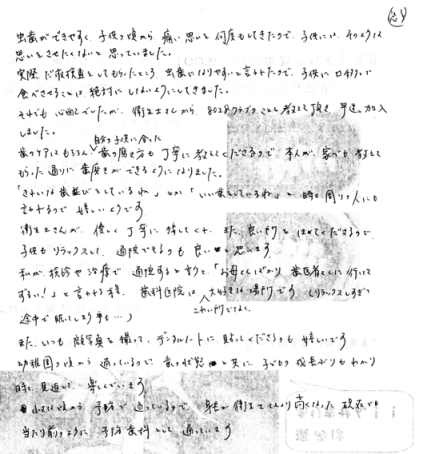 虫歯ができやすく、子供の頃から痛い思いを何度もしてきたので、子供には、そのような
思いをさせたくないと思っていました。
実際だ液検査をしてもらったところ、虫歯になりやすいと言われたので、子供に口移しで
食べさせることは絶対にしないようにしてきました。
それでも心配でしたが、衛生士さんから、8020クラブのことを教えて頂き早速加入
しました。
自分の子供に合った
歯のケアはもちろん、歯の磨き方も丁寧に教えてくださるので、本人が、家でも教えて
もらった通りに歯磨きができるようになりました。
「きれいな歯並びをしているね」とか「いい歯をしているね」と時々周りの人にも
言われるので嬉しいようです
衛生士さんが、優しく丁寧に接してくれ、また、良い所をほめてくださるので、
子供もリラックスして、通院できるのも良いと思います。
私が検診や治療で通院すると言うと、「お母さんばかり歯医者さんに行って
ずるい!」と言われる様、歯科医院は大好きな場所です(リラックスしすぎて
こわい所でなく、
途中で眠ってしまう事も…)
また、いつも顔写真を撮って、デンタルノートに貼ってくださるのも嬉しいです
幼稚園の頃から通っているので、歯の状態と共に、子どもの成長ぶりもわかり
時々見返して、楽しんでいます
小さい頃から予防で通っているので、身長が衛生士さんより高くなった現在でも
当たり前のように予防歯科として通っています